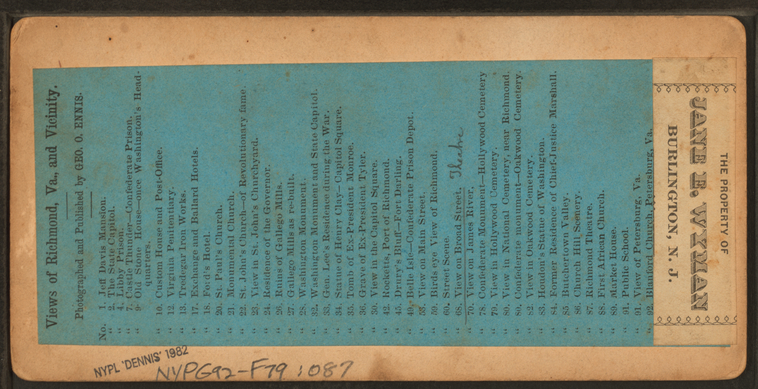 Views of Richmond, Va., and Vicinity.
Photographed and Published by GEO. O. ENNIS.
No. 1. Jeff Davis Mansion.
" 2. The State Capitol.
" 4. Libby Prison.
" 7. Castle Thunder—Confederate Prison.
" 9. Old Stone House—once Washington's Head-
quarters.
" 10. Custom House and Post-Office.
" 12. Virginia Penitentiary.
" 15. Tredegar Iron Works.
" 17. Exchange and Ballard Hotels.
" 18. Ford's Hotel.
" 20. St. Paul's Church.
" 21. Monumental Church.
" 22. St. John's Church—of Revolutionary fame.
" 23. View in St. John's Churchyard.
" 24. Residence of the Governor.
" 26. Ruins of Gallego Mills.
" 27. Gallego Mills as re-built.
" 28. Washington Monument.
" 32. Washington Monument and State Capitol.
" 33. Gen. Lee's Residence during the War.
" 34. Statue of Henry Clay—Capitol Square.
" 35. Tomb of Ex-President Monroe.
" 36. Grave of Ex-President Tyler.
" View in the Capitol Square.
" 42. Rocketts, Port of Richmond.
" 45. Drury's Bluff—Fort Darling.
" 49. Belle Isle—Confederate Prison Depot.
" View on Main Street.
" 59. Birds Eye View of Richmond.
" Street Scene.
" 68. View on Broad Street, Theatre
" 70. View on James River.
" 78. Confederate Monument—Hollywood Cemetery
" 79. View in Hollywood Cemetery.
" 80. View in National Cemetery, near Richmond.
" Confederate Graves—Oakwood Cemetery.
" 82. View in Oakwood Cemetery.
" 83. Houdon's Statue of Washington.
" 84. Former Residence of Chief-Justice Marshall.
" 85. Butchertown Valley.
" 86. Church Hill Scenery.
" 87. Richmond Theatre.
" 88. First African Church.
" 89. Market House.
" 91. Public School.
" View of Petersburg, Va.
" 92. Blanford Church, Petersburg, Va.
THE PROPERTY OF
JANE E. WYMAN
BURLINGTON, N. J.
NYPL 'DENNIS' 1982
NYPG92-F79:087